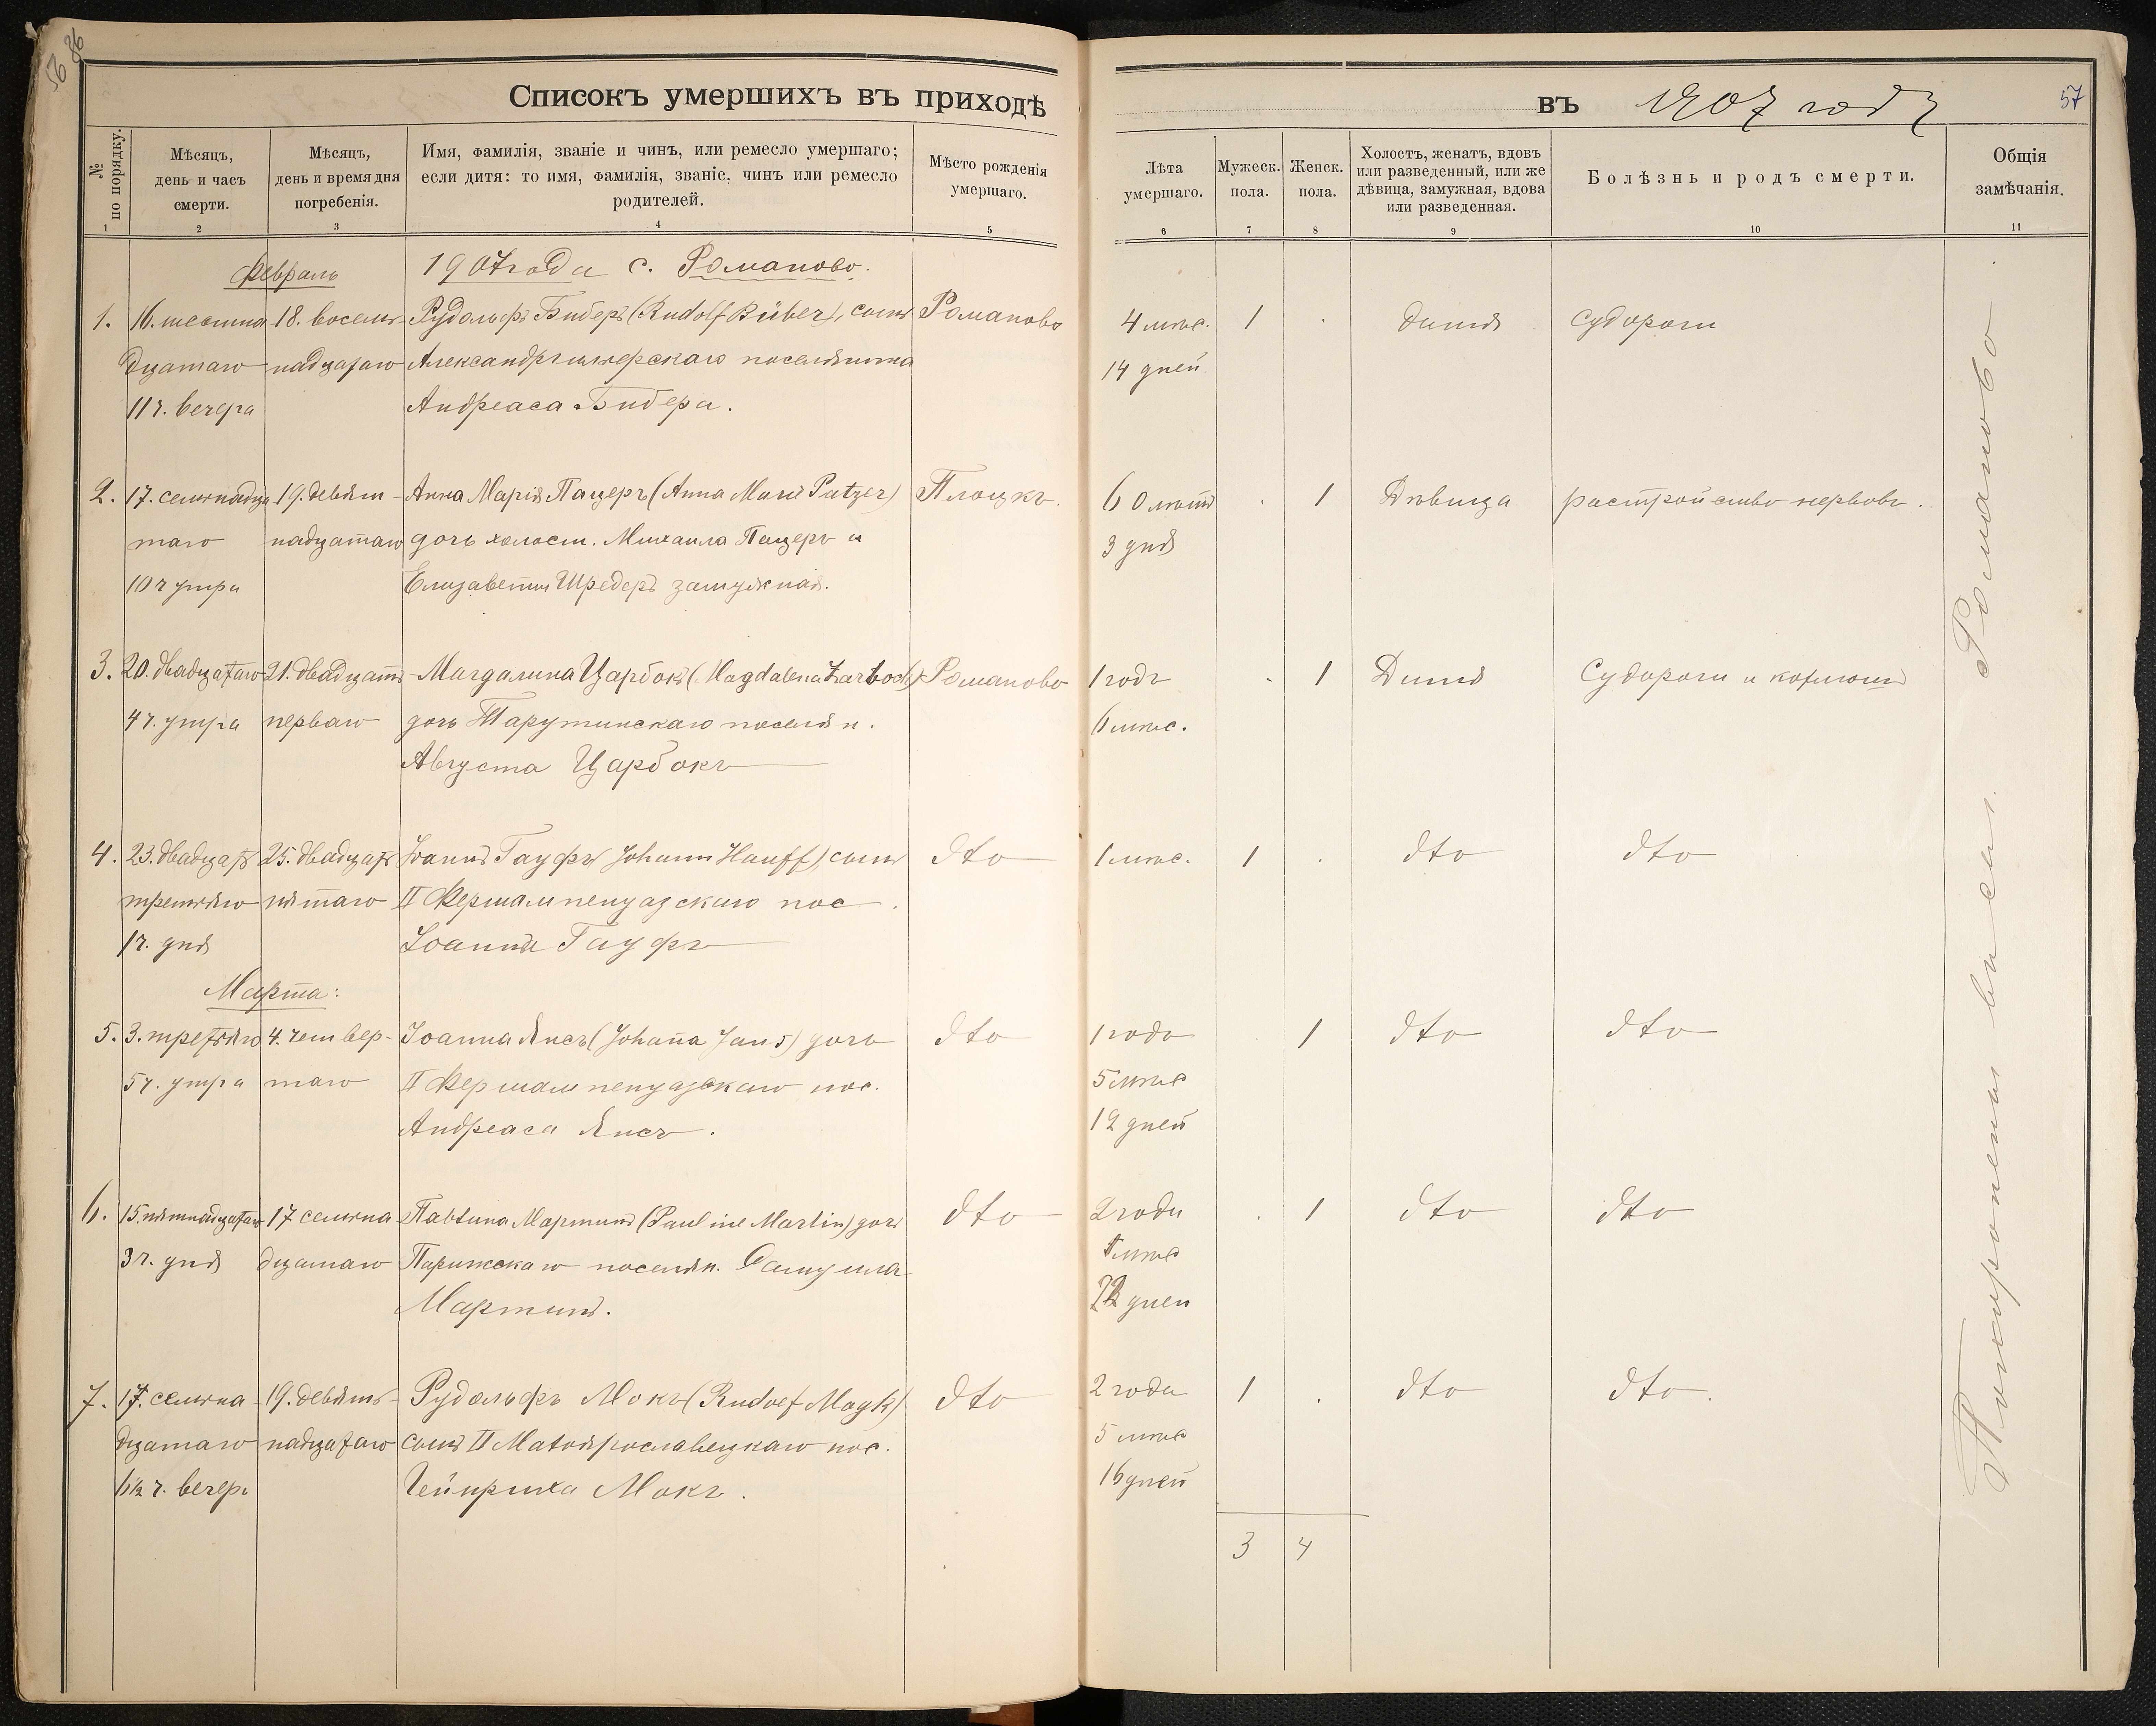 56 86
Списокъ умершихъ въ приходѣ
въ 1907 году
57
№ по порядку.
Мѣсяцъ, день и часъ смерти.
Мѣсяцъ, день и время дня погребенія.
Имя, фамилія, званіе и чинъ, или ремесло умершаго; если дитя: то имя, фамилія, званіе, чинъ или ремесло родителей.
Мѣсто рожденія умершаго.
Лѣта умершаго.
Мужеск. пола.
Женск. пола.
Холостъ, женатъ, вдовъ или разведенный, или же дѣвица, замужная, вдова или разведенная.
Болѣзнь и родъ смерти.
Общія замѣчанія.
1 2 3 4 5 6 7 8 9 10 11
Февраль 1907 года с. Романово.
1. 16. шестна 18. восем- Рудольфъ Биберъ (Rudolf Büber), сынъ Романово 4 мѣс. 1 . дитя судороги
дцатаго надцатаго Александргильферскаго поселянина 14 дней
11 ч. вечера Андреаса Бибера.
2. 17. семнадца 19. девят- Анна Марія Пацеръ (Anna Mari Patzer) Плоцкъ. 60 лѣтъ . 1 Дѣвица растройство нервовъ.
таго надцатаго дочь холост. Михаила Пацеръ и 3 дня
10 ч утра Елизаветы Шредеръ замужная.
3. 20. двадцатаго 21. двадцать- Магдалина Царбокъ (Magdalena Zarbock) Романово 1 годъ . 1 Дитя Судороги и
4 ч. утра перваго дочь Тарутинскаго поселян. 6 мѣс.
Августа Царбокъ
4. 23. двадцать 25. двадцать Іоаннъ Гауфъ (Johann Hauff), сынъ dto 1 мѣс. 1 . dto dto
третьяго пятаго II Фершампенуазскаго пос.
1 ч. дня Іоанна Гауфъ
Марта:
5. 3. третьяго 4. четвер- Іоанна Янсъ (Johanna Jans) дочь dto 1 годъ 1 dto dto
5 ч. утра таго II Фершампенуазскаго пос. 5 мѣс
Андреаса Янсъ. 12 дней
6. 15. пятнадцатаго 17 семна Павлина Мартинъ (Pauline Martin) дочь dto 2 года . 1 dto dto
3 ч. дня дцатаго Парижскаго поселян. Самуила мѣс
Мартинъ. дней
7. 17. семна- 19. девят- Рудольфъ Мокъ (Rudolf Mogk) dto 2 года 1 . dto dto.
дцатаго надцатаго сынъ II Малоярославецкаго пос. 5 мѣс
6½ ч. вечера Гейнриха Мокъ. 16 дней
3 4
Похоронены въ сел. Романово